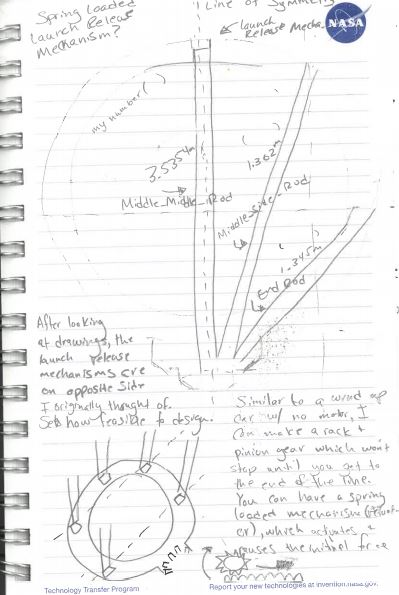 Spring Loaded
Launch Release
Mechanism?
Line of Symmetry
Launch
Release Mecha
NASA
my number ( )
3.5354m
Middle_Middle_Rod
( )
1.362m
Middle_side_Rod
( )
1.345m
End Rod
After looking
at drawings, the
launch release
mechanisms are
on opposite side
I originally thought of.
Sets how feasible to design.
Similar to a wind up
car w/ no motor, I
can make a rack +
pinion gear which won't
stop until you get to
the end of the line.
You can have a spring
loaded mechanism
er), which actuates
causes the
Technology Transfer Program
Report your new technologies at invention.nasa.gov.